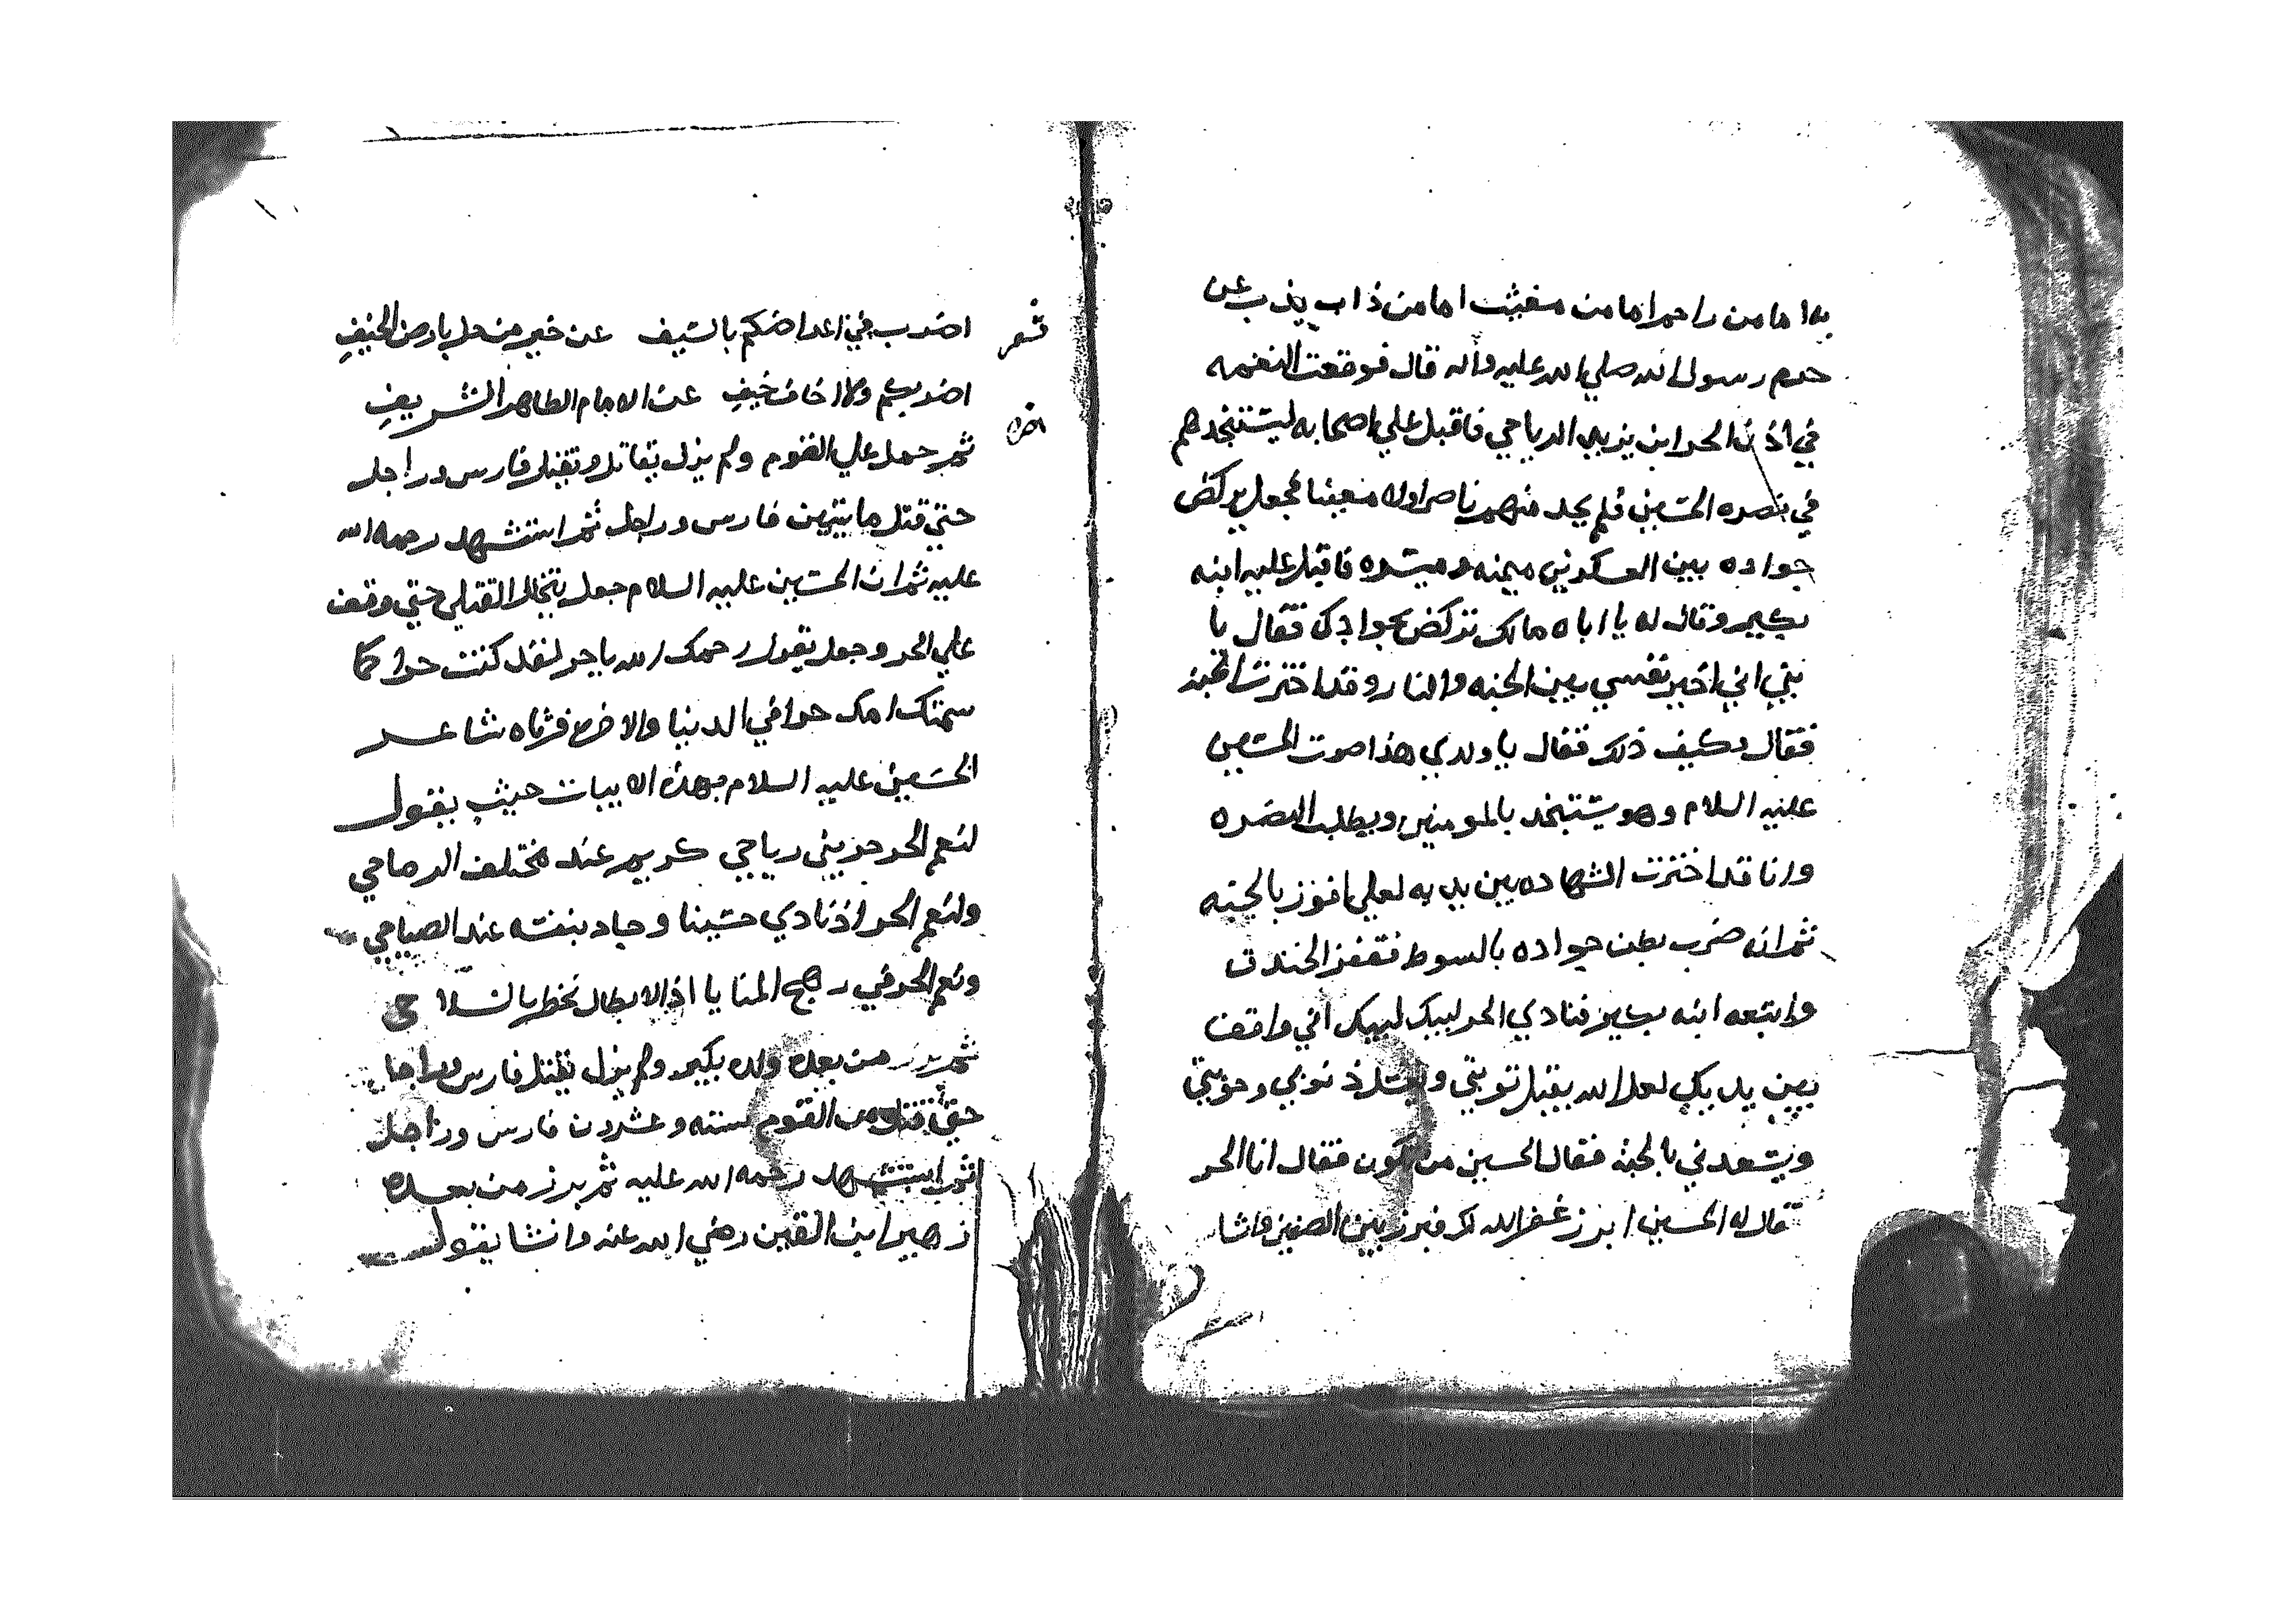 به اما من راحم اما من مغيث اما من ذاب يذب عن
حرم رسول الله صلي الله عليه واله قال فوقعت النغمه
في اذن الحر ابن يزيد الرياحي فاقبل علي اصحابه ليستنجدهم
في نصره الحسين فلم يجد منهم ناصرا ولا معينا فجعل يركض
جواده بين العسكرين ميمنه وميسره فاقبل عليه ابنه
بكير وقال له يا اباه مالك تركض بجوادك فقال يا
بني اني اخير نفسي بين الجنه والنار وقد اخترت الجنه
فقال وكيف ذلك فقال يا ولدي هذا صوت الحسين
عليه السلام وهو يستنجد بالمومنين ويطلب النصره
وانا قد اخترت الشهاده بين يديه لعلي افوز بالجنه
ثم انه ضرب بطن جواده بالسوط فقفز الخندق
واتبعه ابنه بكير فنادي الحر لبيك لبيك اني واقف
بين يديك لعل الله يقبل توبتي ويستر ذنوبي وحوبتي
ويسعدني بالجنه فقال الحسين من تكون فقال انا الحر
قال له الحسين ابرز غفر الله لك فبرز بين الصفين وانشا
شعر
اضرب في اعراضكم بالسيف عن خير من حل بارض الخيف
اضربكم ولا اخاف خيف عن الامام الطاهر الشريف
اخره
ثم حمل علي القوم ولم يزل يقاتل ويقتل فارس وراجل
حتي قتل مايتين فارس وراجل ثم استشهد رحمه الله
عليه ثم ان الحسين عليه السلام جعل يتخلل القتلي حتي وقف
علي الحر وجعل يقول رحمك الله يا حر لقد كنت حرا كما
سمتك امك حرا في الدنيا والاخره فرثاه شاعر
الحسين عليه السلام بهذه الابيات حيث يقول
لنعم الحر حر بني رياحي كريم عند مختلف الرماحي
ولنعم الحر اذ نادي حسينا وجاد بنفسه عند الصياحي
ونعم الحر في رهج المنايا اذ الابطال تخطر بالسلاحي
ثم برز من بعده ولده بكير ولم يزل يقتل فارس وراجل
حتي قتل من القوم سته وعشرون فارس وراجل
ثم استشهد رحمه الله عليه ثم برز من بعده
زهير ابن القين رضي الله عنه وانشا يقول